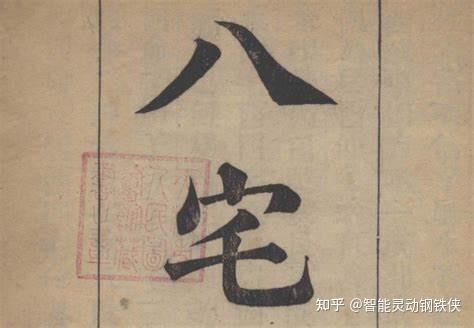 八
宅
知乎 @智能灵动钢铁侠